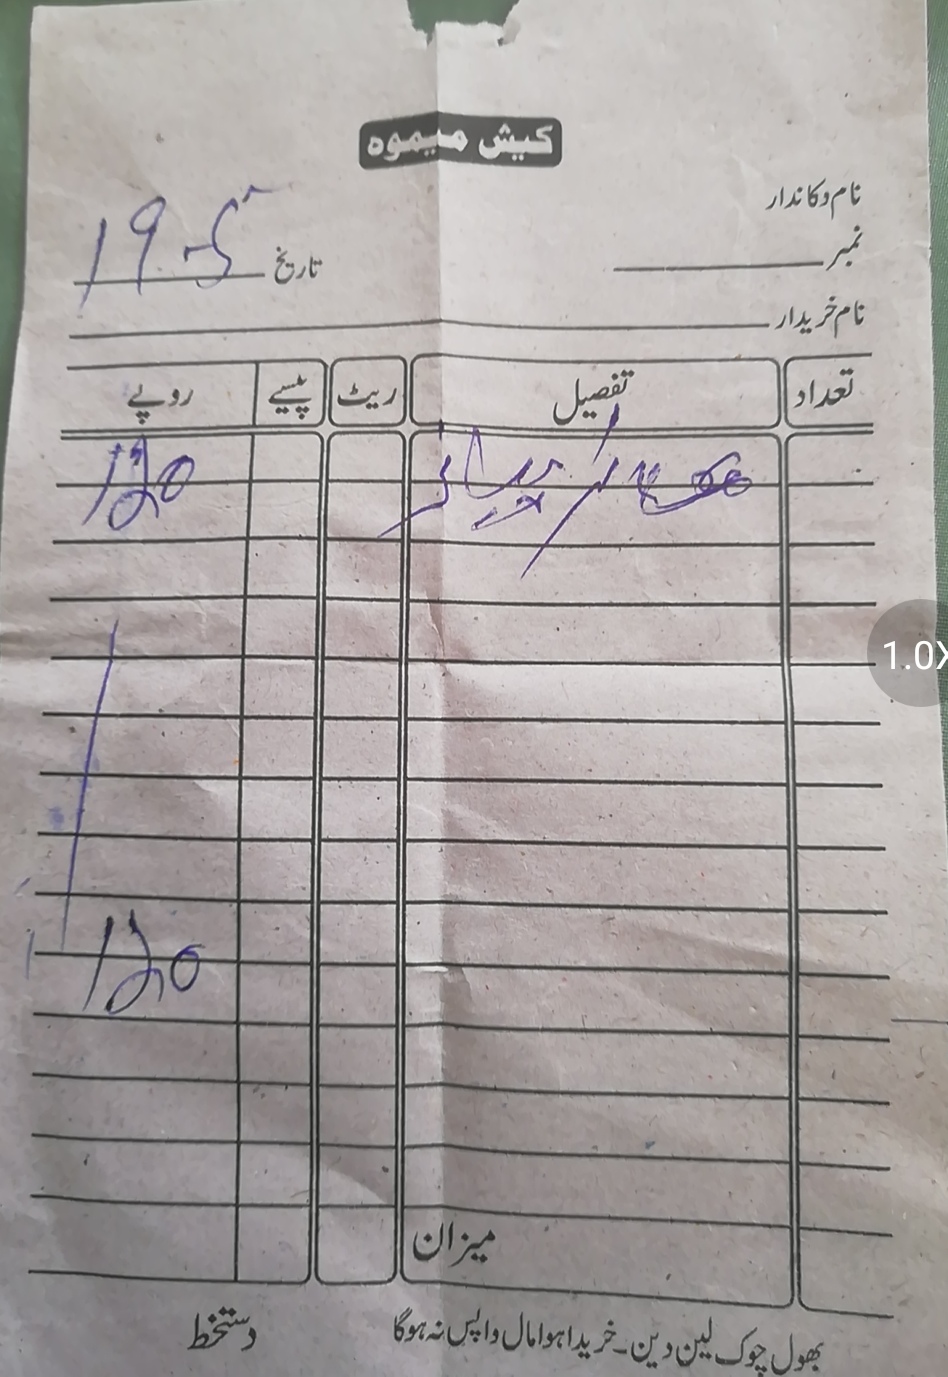 کیش میموہ
نام دکاندار
نمبر
تاریخ 19-5
نام خریدار
تعداد تفصیل ریٹ پیسے روپے
120
120
میزان
بھول چوک لین دین۔ خریدا ہوا مال واپس نہ ہوگا
دستخط
1.0X